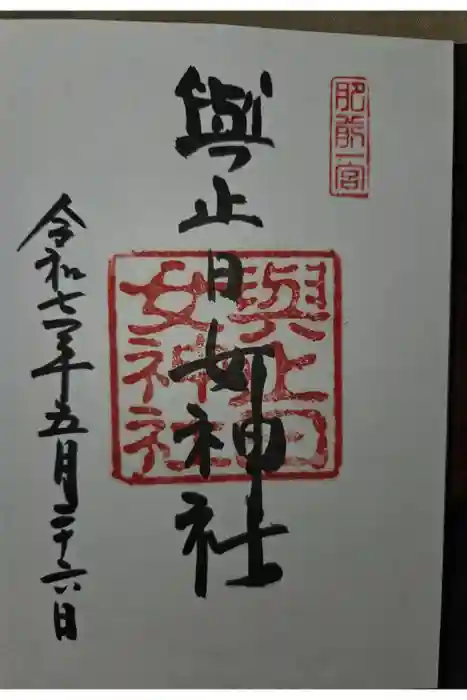 肥前一宮
與止日女神社
與止日女神社
令和七年五月二十六日